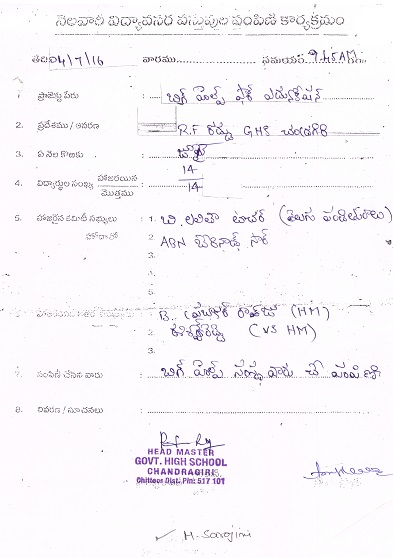 నెలవారి విద్యావసర వస్తువుల పంపిణి కార్యక్రమం
తేది 04/7/16 వారము సమయం 9.45AM
1. ప్రాజెక్టు పేరు బిగ్ హెల్ప్ ఫర్ ఎడ్యుకేషన్
2. ప్రదేశము / ఆవరణ R.F రోడ్డు GHS చంద్రగిరి
3. ఏ నెల కొఱకు జూన్
4. విద్యార్థుల సంఖ్య హాజరయిన 14
మొత్తము 14
5. హాజరైన కమిటీ సభ్యులు 1. బి. లలితా టీచర్ (తెలుగు పండితురాలు)
హోదాతో 2. ABN సార్
3.
5.
B. (HM)
2. ఈశ్వర్ రెడ్డి (VS HM)
3.
పంపిణి చేసిన వారు బిగ్ హెల్ప్ సంస్థ వారు చే పంపిణి
8. వివరణ / సూచనలు
HEAD MASTER
GOVT. HIGH SCHOOL
CHANDRAGIRI
Chittoor Dist. Pin: 517 101
M. Sarojini